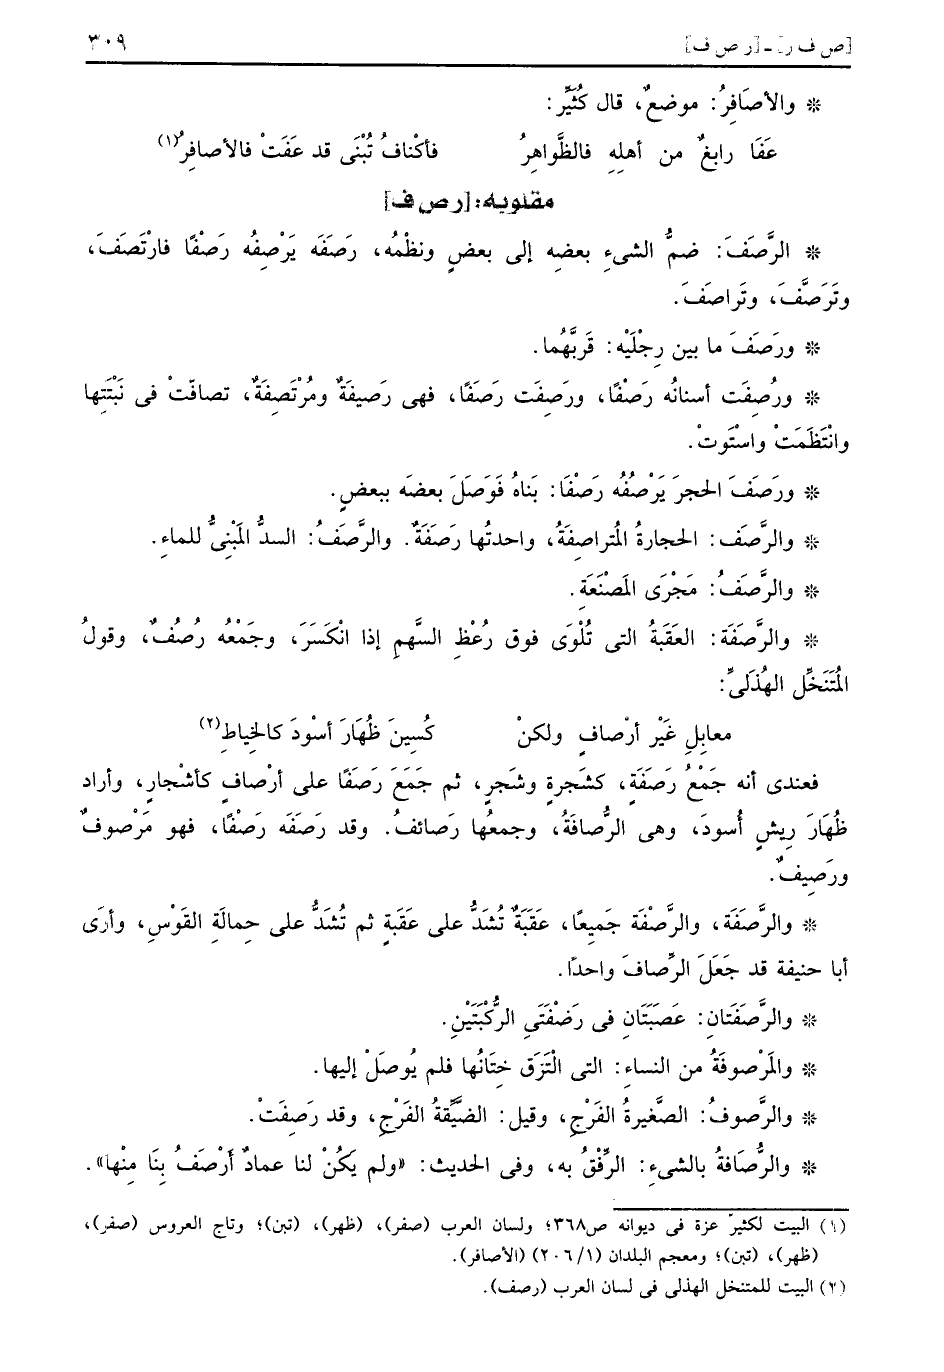 [ص ف ر] - [ر ص ف]
٣٠٩
* والأصَافِرُ: موضعٌ، قال كُثَيِّر:
عَفَا رابغٌ من أهلِهِ فالظَّواهِرُ فأكْنافُ تُبْنَى قد عَفَتْ فالأصافِرُ(١)
مقلوبه: [ر ص ف]
* الرَّصَفَ: ضمُّ الشىءِ بعضِه إلى بعضٍ ونظْمُه، رصَفَه يَرْصِفُه رَصْفًا فارْتَصَفَ،
وتَرَصَّفَ، وتَراصَفَ.
* ورَصَفَ ما بين رِجْلَيْه: قَرَبَّهُما.
* ورُصِفَت أسنانُه رَصْفًا، ورَصِفَت رَصَفًا، فهى رَصِيفَةٌ ومُرْتَصِفَةٌ، تصافّتْ فى نَبْتَتِها
وانْتَظَمَتْ واسْتَوتْ.
* ورَصَفَ الحجرَ يَرْصُفُه رصْفَا: بَناهُ فَوَصَلَ بعضَه ببعضٍ.
* والرَّصَف: الحجارةُ المُتراصِفَةُ، واحدتُها رَصَفَةٌ. والرَّصَفُ: السدُّ المَبْنِىُّ للماءِ.
* والرَّصَفُ: مَجْرَى المَصْنَعَةِ.
* والرَّصَفَة: العَقَبَةُ التى تُلْوَى فوق رُعْظِ السَّهمِ إذا انْكَسَرَ، وجَمْعُه رُصُفٌ، وقولُ
المُتَنَخِّل الهُذَلىِّ:
معابلِ غَيْر أرْصافٍ ولكنْ كُسِينَ ظُهَارَ أسْودَ كالخياطِ(٢)
فعندى أنه جَمْعُ رَصَفَةٍ، كشَجرةٍ وشَجرٍ، ثم جَمَعَ رَصَفًا على أرْصافٍ كأشْجارٍ، وأراد
ظُهَارَ رِيشٍ أسودَ، وهى الرُّصافَةُ، وجمعُها رَصائفُ. وقد رَصَفَه رَصْفًا، فهو مَرْصوفٌ
ورَصِيفٌ.
* والرَّصَفَة، والرَّصْفَة جَميعًا، عَقَبَةٌ تُشَدُّ على عَقَبةٍ ثم تُشَدُّ على حِمالَةِ القَوْسِ، وأرَى
أبا حنيفة قد جَعَلَ الرِّصافَ واحدًا.
* والرَّصَفَتَانِ: عَصَبَتَانِ فى رَضْفَتَىِ الرُّكْبَتَيْنِ.
* والمَرْصوفَةُ من النساءِ: التى الْتَزَق خِتَانُها فلم يُوصَلْ إليها.
* والرَّصوفُ: الصَّغيرةُ الفَرْجِ، وقيل: الضَيِّقةُ الفَرْجِ، وقد رَصِفَتْ.
* والرُّصَافَةُ بالشىءِ: الرِّفْقُ به، وفى الحديث: «ولم يَكُنْ لنا عمادٌ أَرْصَفُ بِنَا مِنْها».
(١) البيت لكثيرّ عزة فى ديوانه ص٣٦٨؛ ولسان العرب (صفر)، (ظهر)، (تبن)؛ وتاج العروس (صفر)،
(ظهر)، (تبن)؛ ومعجم البلدان (٢٠٦/١) (الأصافر).
(٢) البيت للمتنخل الهذلى فى لسان العرب (رصف).